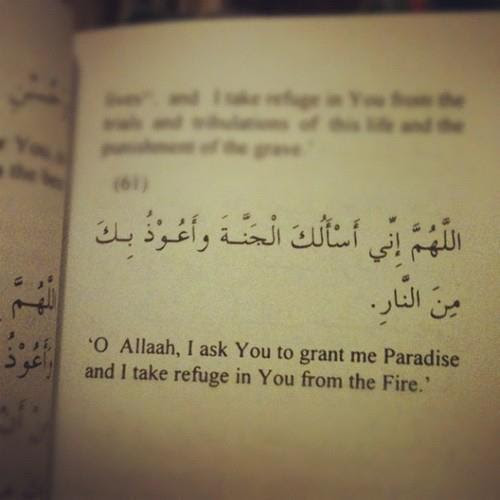 lives", and I take refuge in You from the
trials and tribulations of this life and the
punishment of the grave.'
(61)
اللَّهُمَّ إِنِّي أَسْأَلُكَ الْجَنَّـةَ وأَعُـوْذُ بِـكَ
مِنَ النَّارِ.
'O Allaah, I ask You to grant me Paradise
and I take refuge in You from the Fire.'